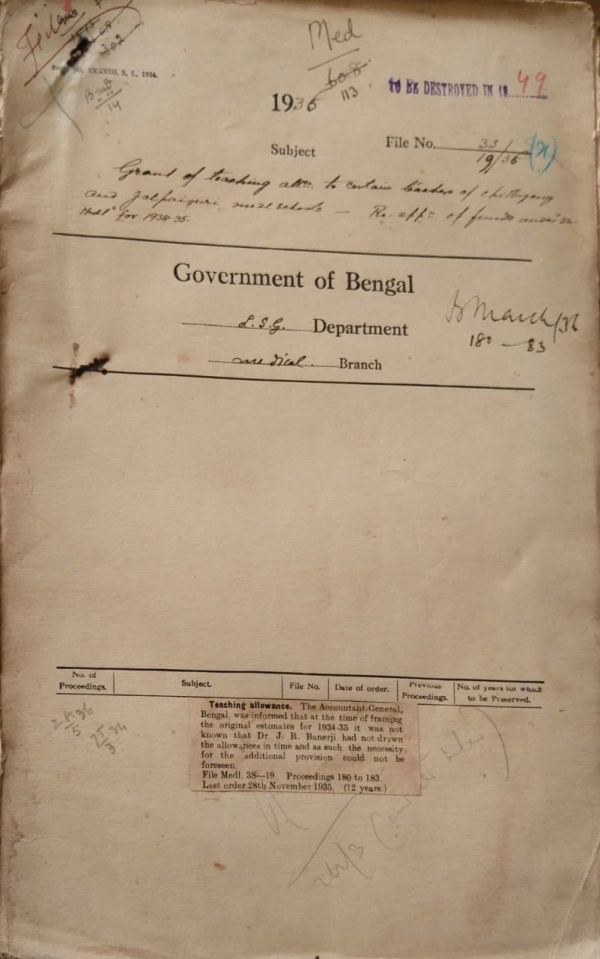 Filed
Med
608
113
S. I., 1934.
14
1935
TO BE DESTROYED IN 19 49
Subject
File No. 3S/
19/35
Grant of teaching allce. to certain teachers of Chittagong
and Jalpaiguri medl schools — Re-app. of funds under
for 1934-35
Government of Bengal
L.S.G. Department
B March/36
180 — 83
medical. Branch
No. of
Proceedings.
Subject.
File No.
Date of order.
Previous
Proceedings.
No. of years for which
to be Preserved.
Teaching allowance. The Accountant-General,
Bengal, was informed that at the time of framing
the original estimates for 1934-35 it was not
known that Dr. J. R. Banerji had not drawn
the allowances in time and as such the necessity
for the additional provision could not be
foreseen.
File Medl. 3S—19. Proceedings 180 to 183.
Last order 28th November 1935. (12 years.)